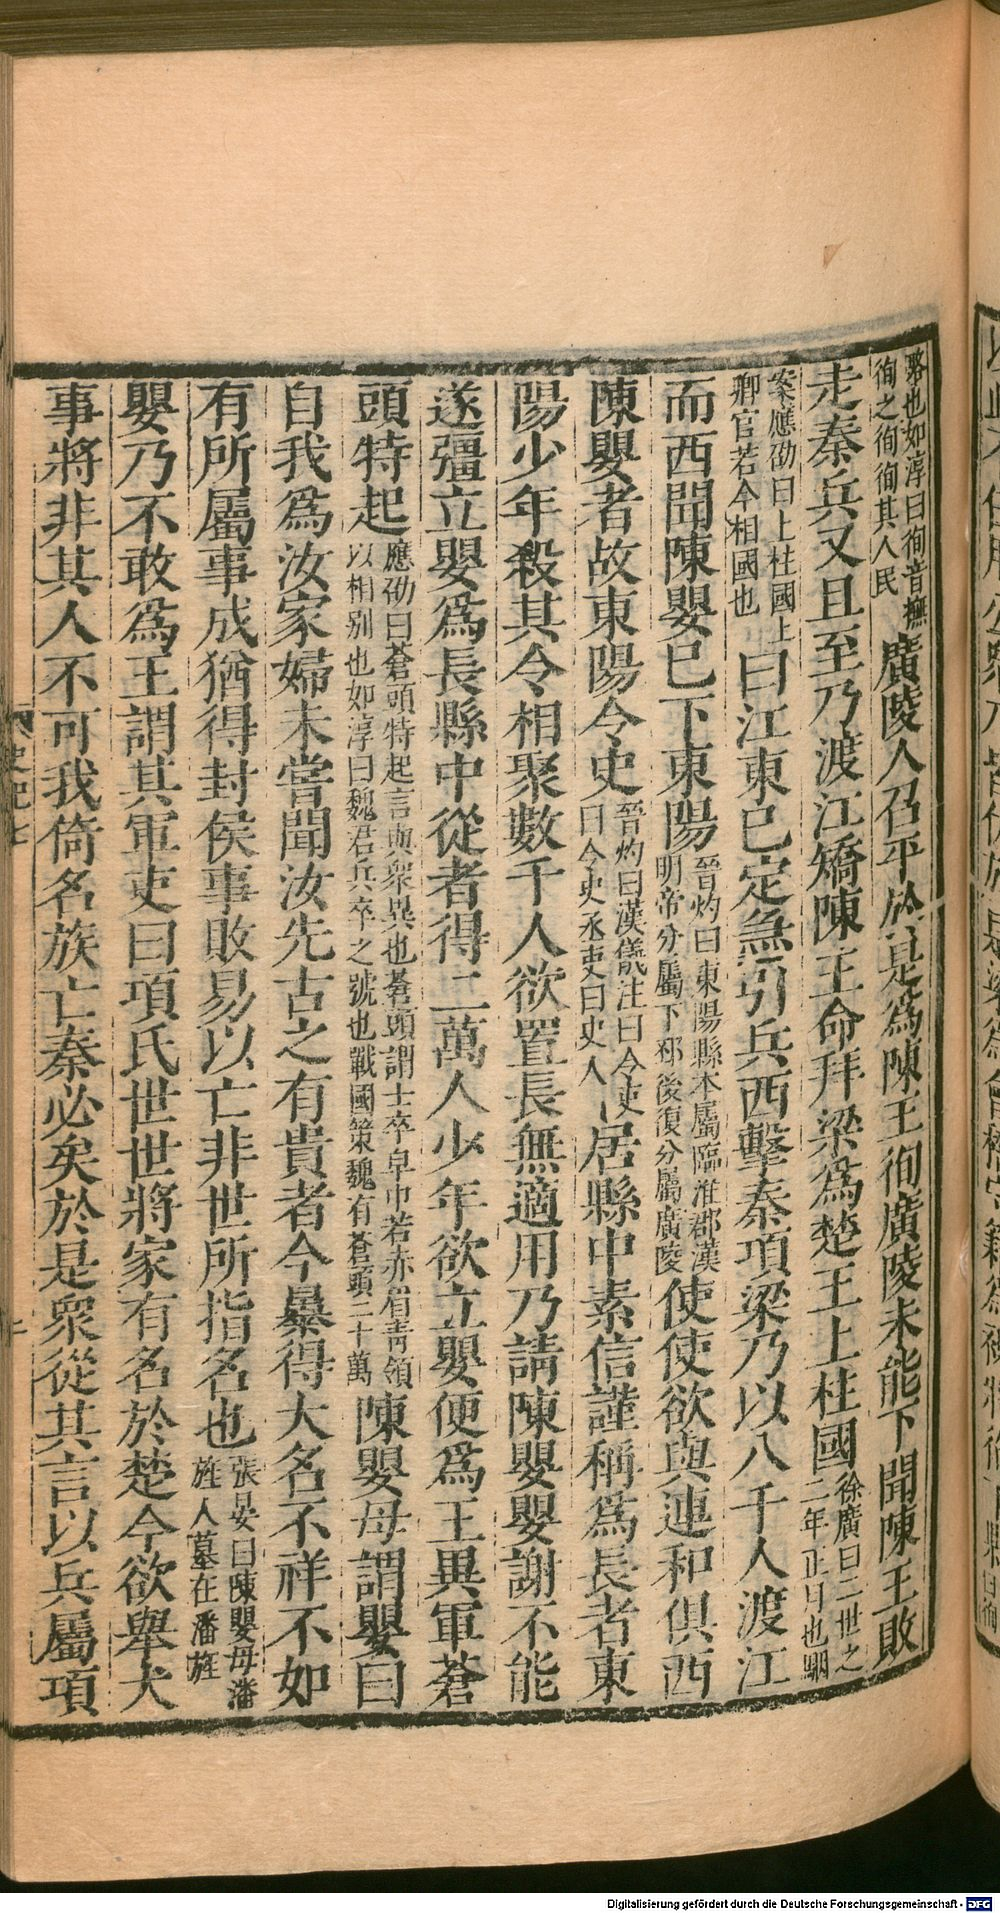 略也如淳曰徇音撫徇之徇徇其人民廣陵人召平於是爲陳王徇廣陵未能下聞陳王敗
走秦兵又且至乃渡江矯陳王命拜梁爲楚王上柱國徐廣曰二世之二年正月也駰
案應劭曰上柱國上卿官若今相國也曰江東已定急引兵西擊秦項梁乃以八千人渡江
而西聞陳嬰已下東陽晉灼曰東陽縣本屬臨淮郡漢明帝分屬下邳後復分屬廣陵使使欲與連和俱西
陳嬰者故東陽令史晉灼曰漢儀注曰令吏曰令史丞吏曰史人居縣中素信謹稱爲長者東
陽少年殺其令相聚數千人欲置長無適用乃請陳嬰嬰謝不能
遂彊立嬰爲長縣中從者得二萬人少年欲立嬰便爲王異軍蒼
頭特起應劭曰蒼頭特起言與衆異也蒼頭謂士卒皁巾若赤眉靑領以相别也如淳曰魏君兵卒之號也戰國策魏有蒼頭二十萬陳嬰母謂嬰曰
自我爲汝家婦未嘗聞汝先古之有貴者今暴得大名不祥不如
有所屬事成猶得封侯事敗易以亡非世所指名也張晏曰陳嬰母潘旌人墓在潘旌
嬰乃不敢爲王謂其軍吏曰項氏世世將家有名於楚今欲舉大
事將非其人不可我倚名族亡秦必矣於是衆從其言以兵屬項
史記七
Digitalisierung gefördert durch die Deutsche Forschungsgemeinschaft - DFG